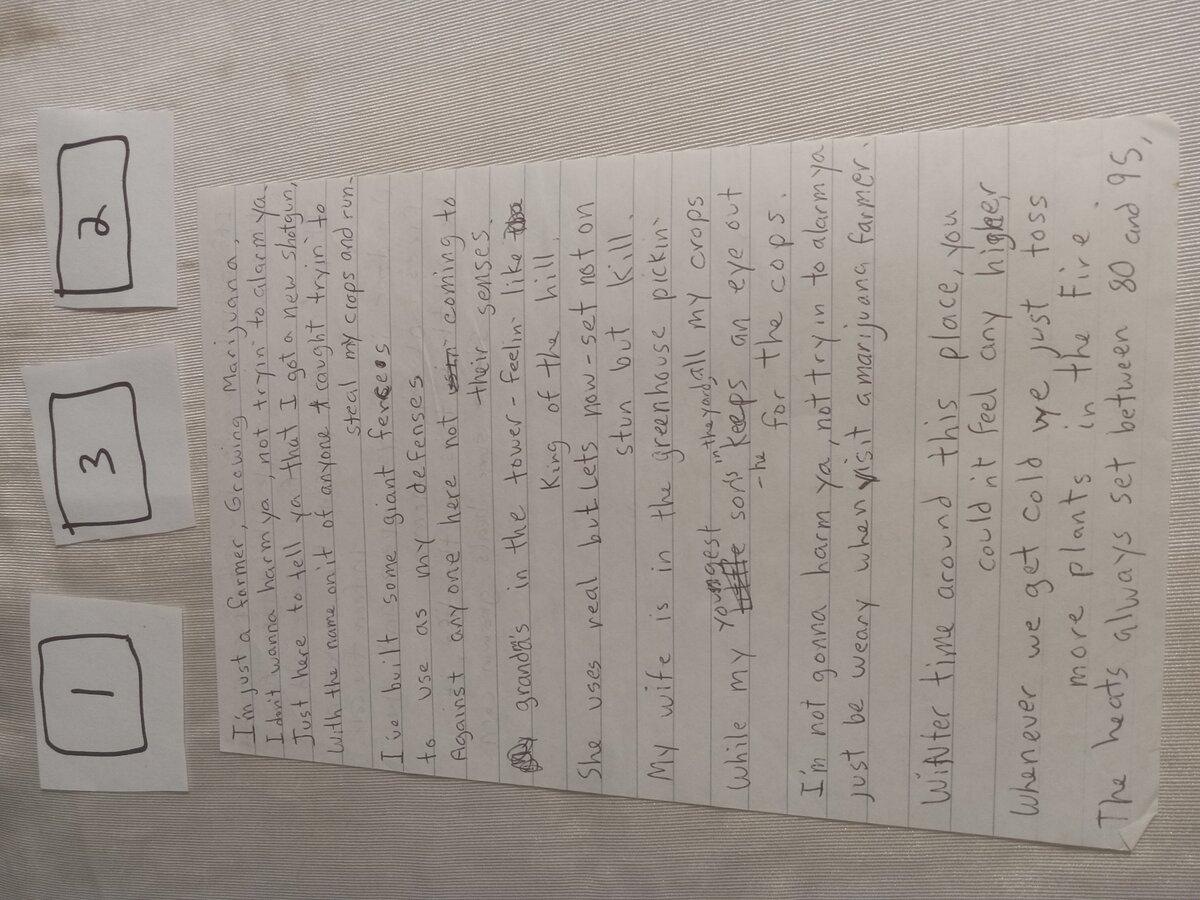 1
3
2
I'm just a farmer, Growing Marijuana,
I don't wanna harm ya, not tryin' to alarm ya
Just here to tell ya that I got a new shotgun,
with the name on it of anyone I caught tryin' to
steal my crops and run.
I've built some giant fences
to use as my defenses
Against any one here not coming to
their senses.
grandpa's in the tower - feelin' like
King of the hill.
She uses real but Lets now - set not on
stun but kill.
My wife is in the greenhouse pickin'
all my crops
While my youngest son's in the yard,
- he keeps an eye out
for the cops.
I'm not gonna harm ya, not tryin to alarm ya
just be weary when visit a marijuana farmer.
WiNter time around this place, you
could n't feel any higher,
Whenever we get cold we just toss
more plants in the fire.
The heats always set between 80 and 95,